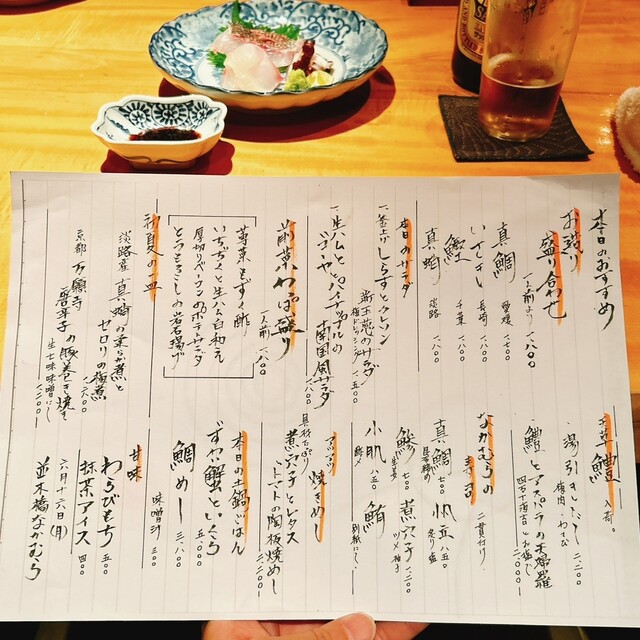 本日のおすすめ
お造り
盛り合わせ
一人前より 一、八〇〇
真鯛 愛媛 一、八〇〇
いさき 長崎 一、八〇〇
鰹 千葉 一、八〇〇
真蛸 淡路 一、八〇〇
本日のサラダ
一、釜上げしらすとクレソン
新玉葱のサラダ
一、五〇〇
一、生ハムとパイナップルの
南国風サラダ
前菜わっぱ盛り
一人前 一、八〇〇
蓴菜もずく酢
いちぢくと生ハム白和え
厚切りベーコンのポテトサラダ
とうもろこしの岩石揚げ
初夏の皿
淡路産 真蛸の柔らか煮と
ゼロリの梅煮
一、六〇〇
京都 万願寺
唐辛子の豚巻き焼き
生七味味噌にし
一、二〇〇
鱧 入荷。
・湯引きおとし 二、二〇〇
梅肉・わさび
・鱧とアスパラの天婦羅
二、二〇〇
なかむらの
寿司
二貫付け
真鯛 七〇〇
昆布締め
帆立 八五〇
炙り塩
鯵 七〇〇
煮穴子 一、二〇〇
ツメ 柚子
小肌 八五〇
酢〆
鮪
別紙にし
アツアツ
焼きめし
具材たっぷり
煮穴子とレタス
トマトの陶板焼めし
二、二〇〇
本日の土鍋ごはん
ずわい蟹といくら
五、〇〇〇
鯛めし 三、八〇〇
味噌汁 三〇〇
甘味
わらびもち 五〇〇
抹茶アイス 四〇〇
六月十六日(月)
並木橋なかむら